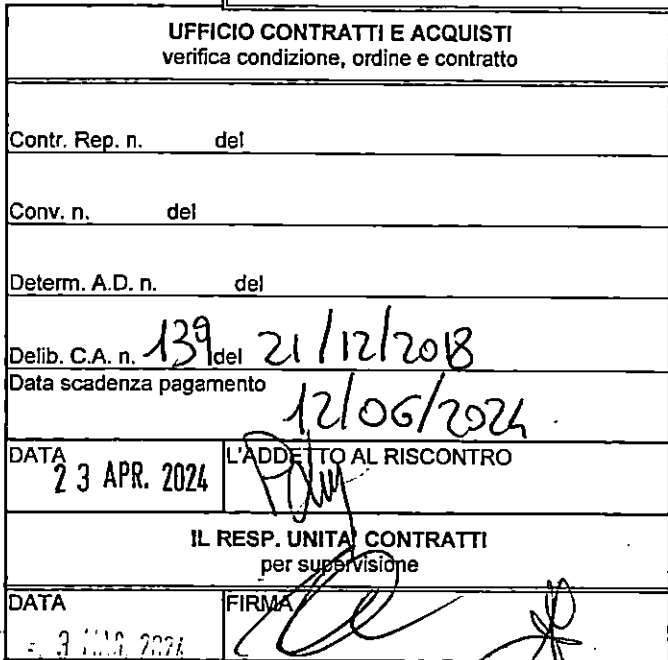 UFFICIO CONTRATTI E ACQUISTI
verifica condizione, ordine e contratto
Contr. Rep. n. del
Conv. n. del
Determ. A.D. n. del
Delib. C.A. n. 139 del 21/12/2018
Data scadenza pagamento
12/06/2024
DATA L'ADDETTO AL RISCONTRO
23 APR. 2024
IL RESP. UNITA' CONTRATTI
per supervisione
DATA FIRMA
3 2024